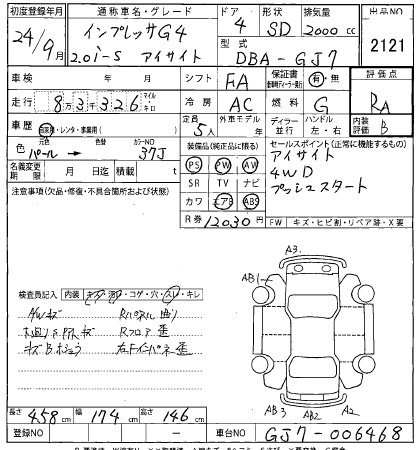 初度登録年月 通称車名・グレード ドア 形状 排気量 出品NO
24/9月 インプレッサG4 4 SD 2000cc
2.0i-S アイサイト 型式 DBA-GJ7 2121
車検 年 月 シフト FA 保証書 有・無 評価点
走行 8万3千326 マイル キロ 冷房 AC 燃料 G RA
車歴 自家用・レンタ・事業用( ) 定員 5人 外車モデル 年 ディーラー 並行 ハンドル 左・右 内装評価 B
色 パール→ 色替 カラーNO 37J 装備品(純正品に限る) セールスポイント(正常に機能するもの)
名義変更期限 月 日迄 積載 t PS PW AW アイサイト
注意事項(欠品・修復・不具合箇所および状態) SR TV ナビ 4WD
カワ エアB ABS プッシュスタート
R券 12030円 FW キズ・ヒビ割・リペア跡・X要
A3
AB1
検査員記入 内装 キズ・汚れ・コゲ・穴・スレ・キレ
AWキズ
Rフロア
キズBホシュウ
AB3 AB2 A2
長さ 458cm 幅 174cm 高さ 146cm
登録NO — 車台NO GJ7-006468